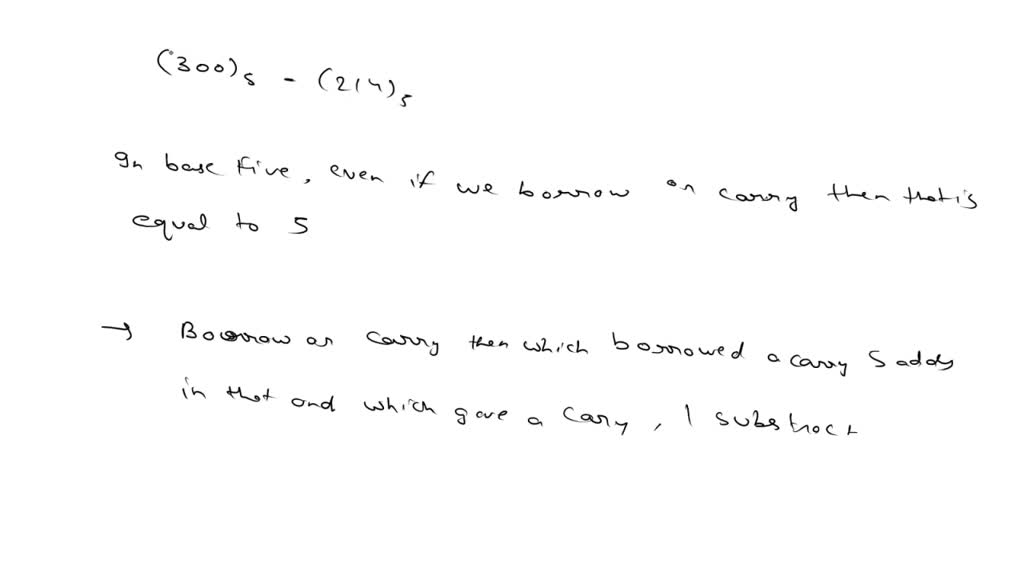 (300)5 - (214)5
In base five, even if we borrow or carry then that is
equal to 5
→ Boorrow or carry then which borrowed a carry 5 adds
in that and which gave a cary, 1 substract